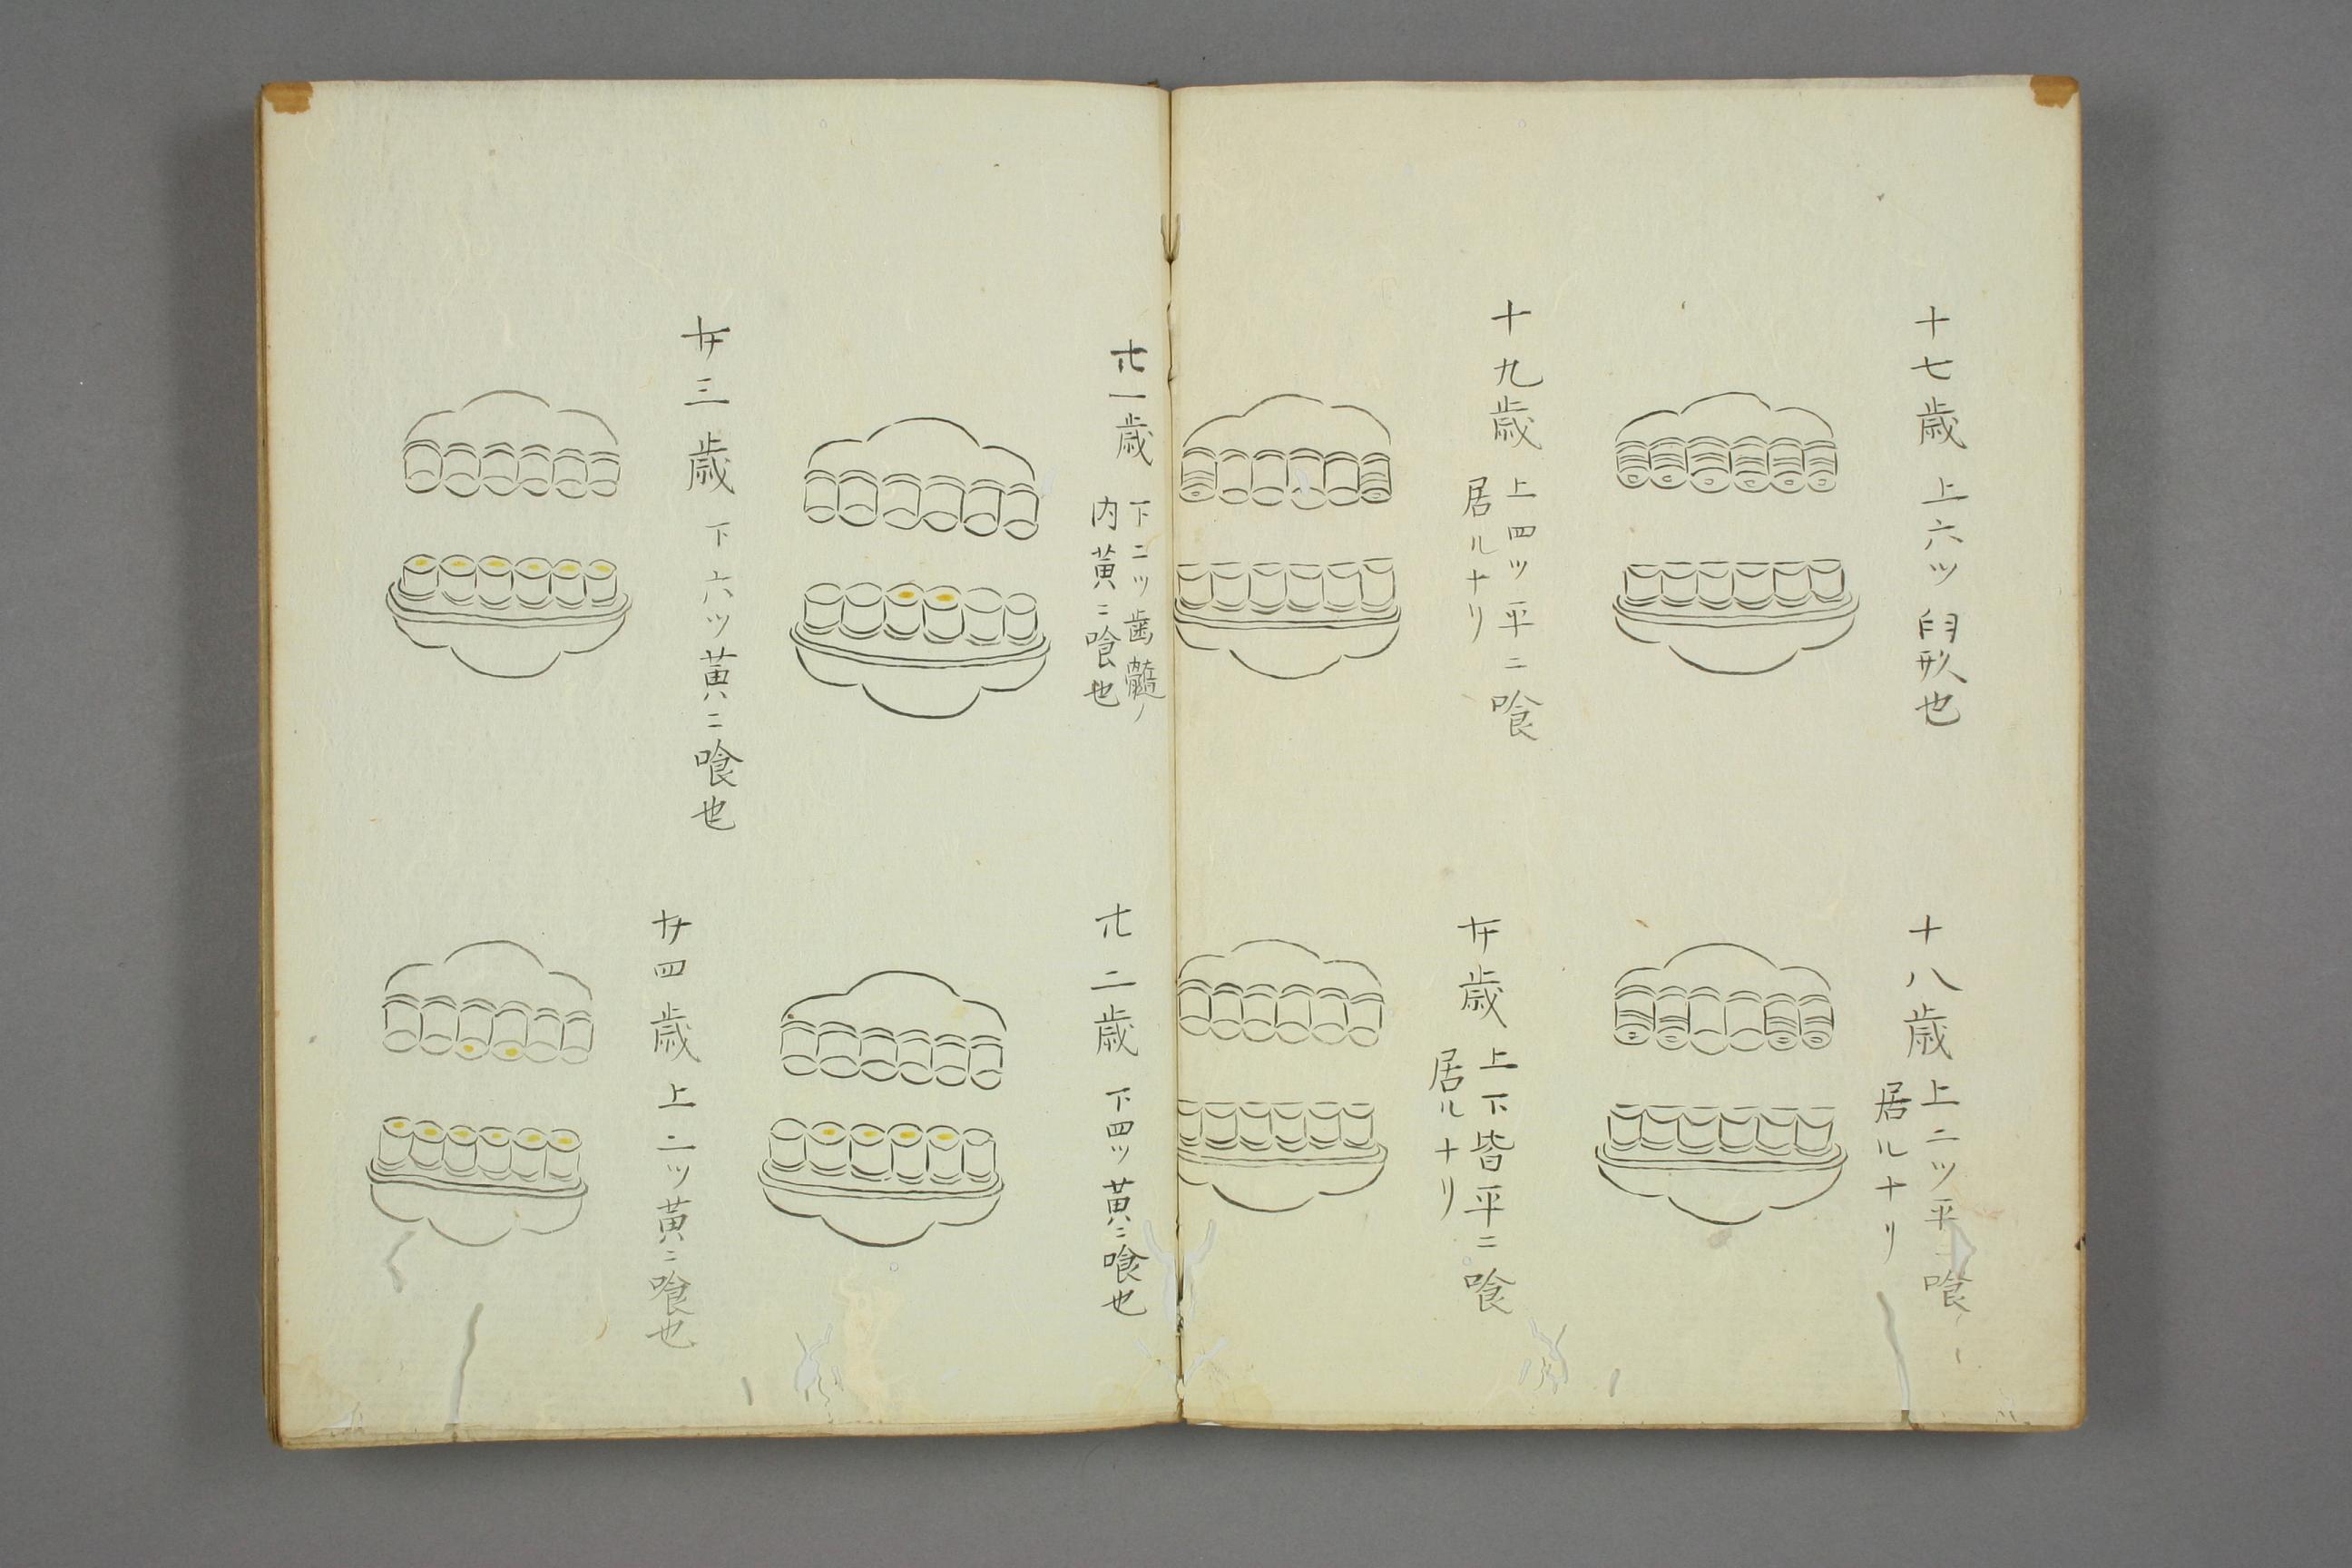 十七歳 上六ツ臼形也
十八歳 上二ツ平ニ喰
居ルナリ
十九歳 上四ツ平ニ喰
居ルナリ
廿歳 上下皆平ニ喰
居ルナリ
廿一歳 下二ツ歯髓ノ
内黄ニ喰也
廿二歳 下四ツ黄ニ喰也
廿三歳 下六ツ黄ニ喰也
廿四歳 上二ツ黄ニ喰也